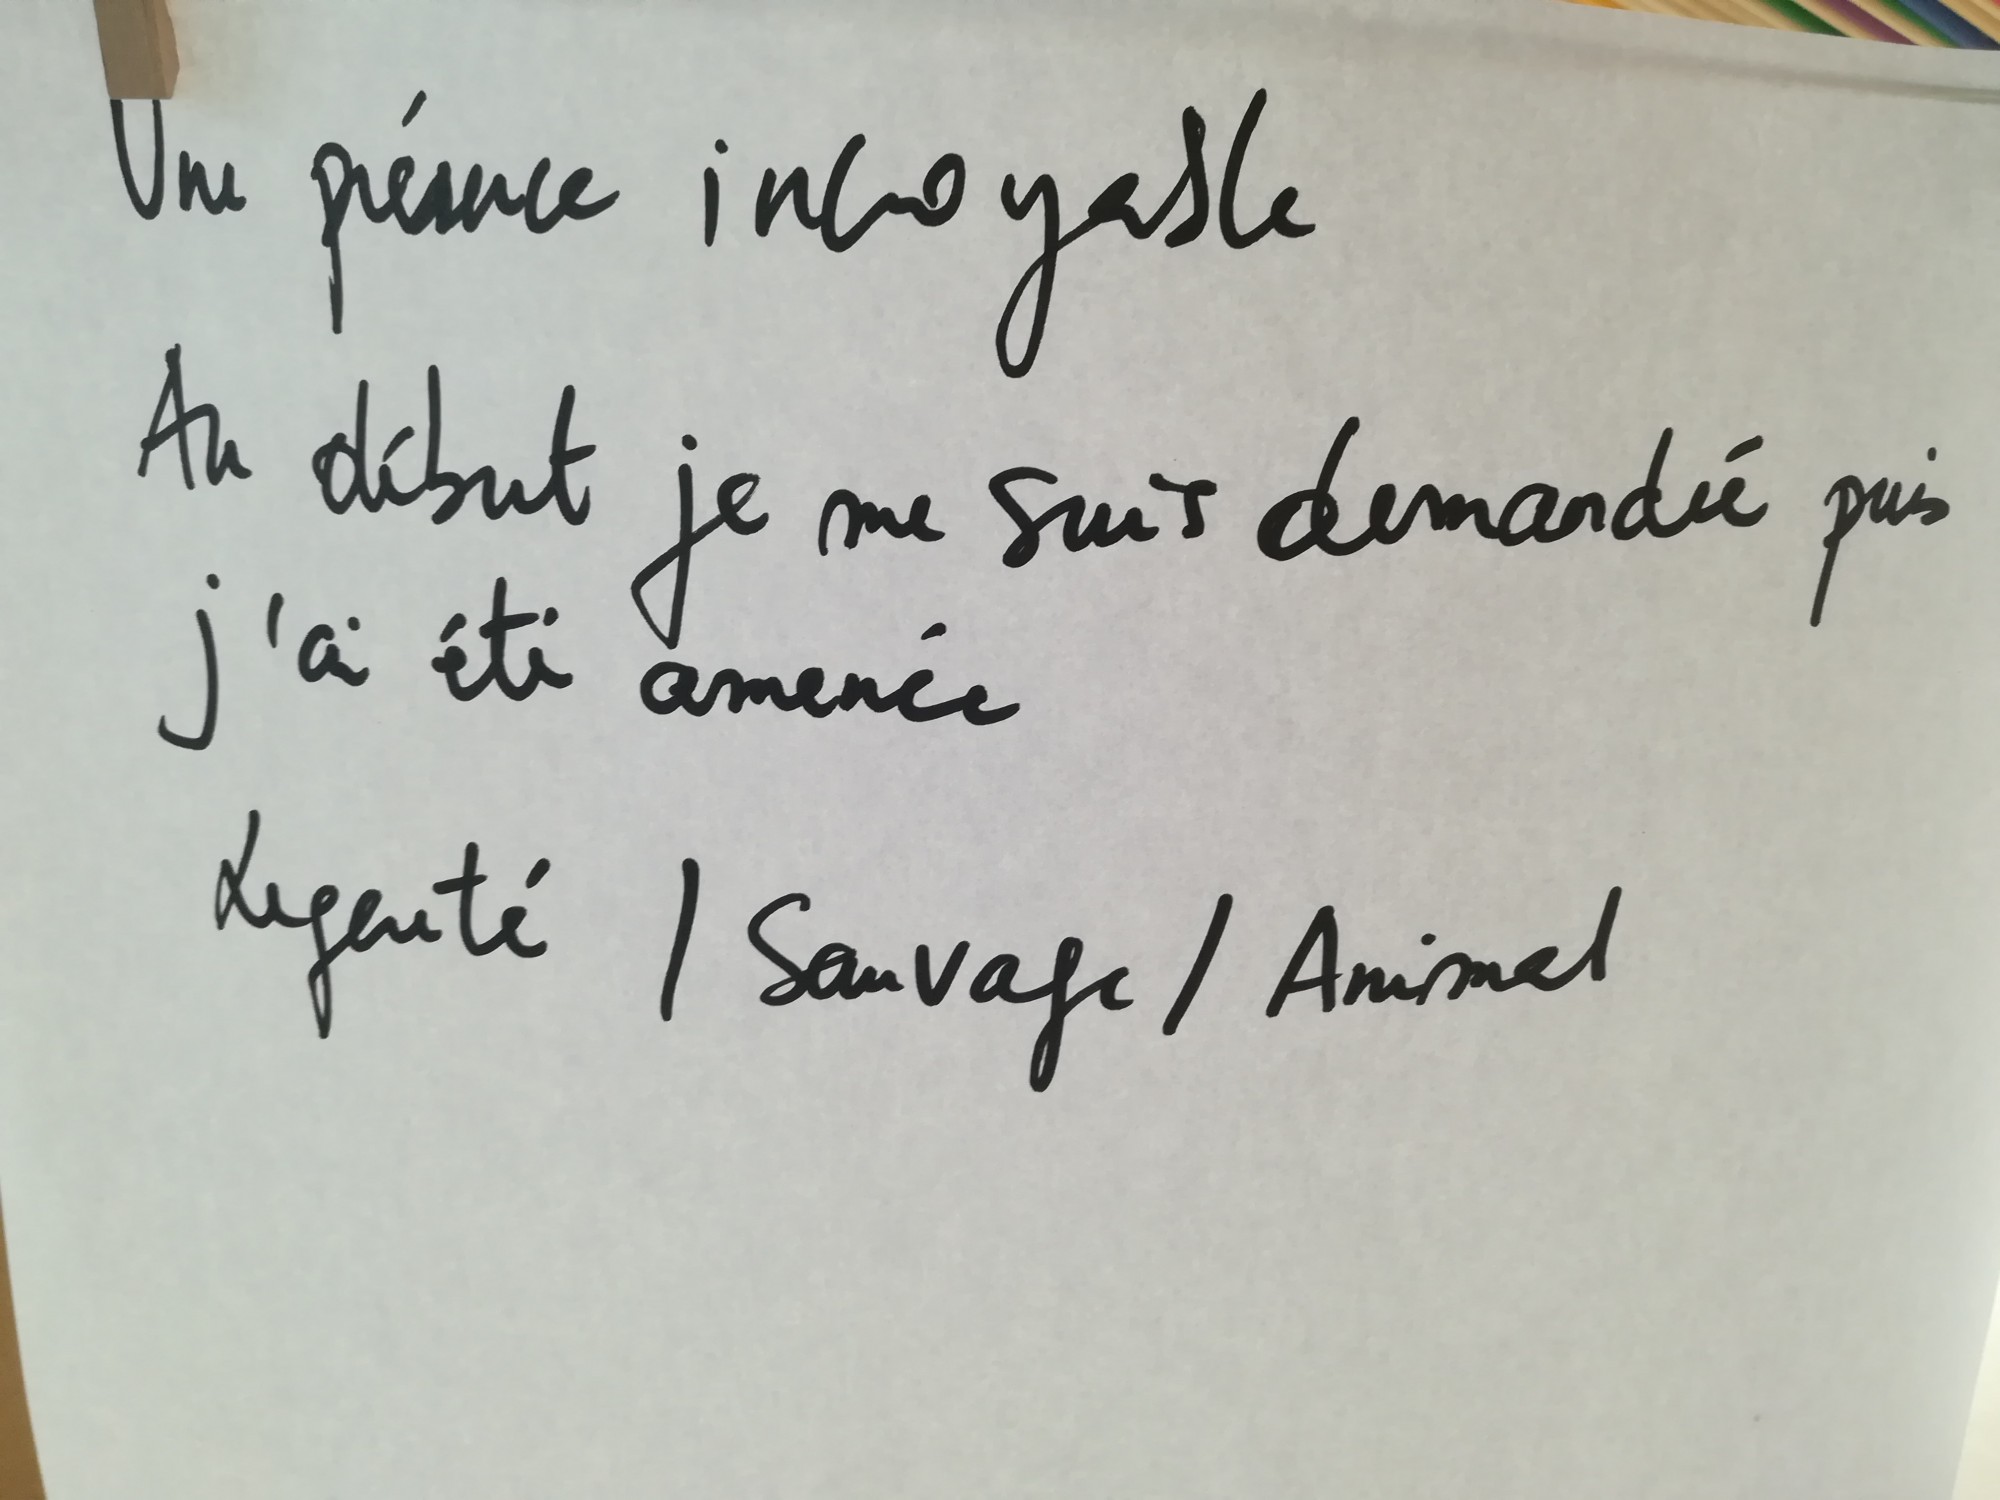 Une présence incroyable
Au début je me suis demandé puis
j'ai été amenée
Legerté / Sauvage / Animal